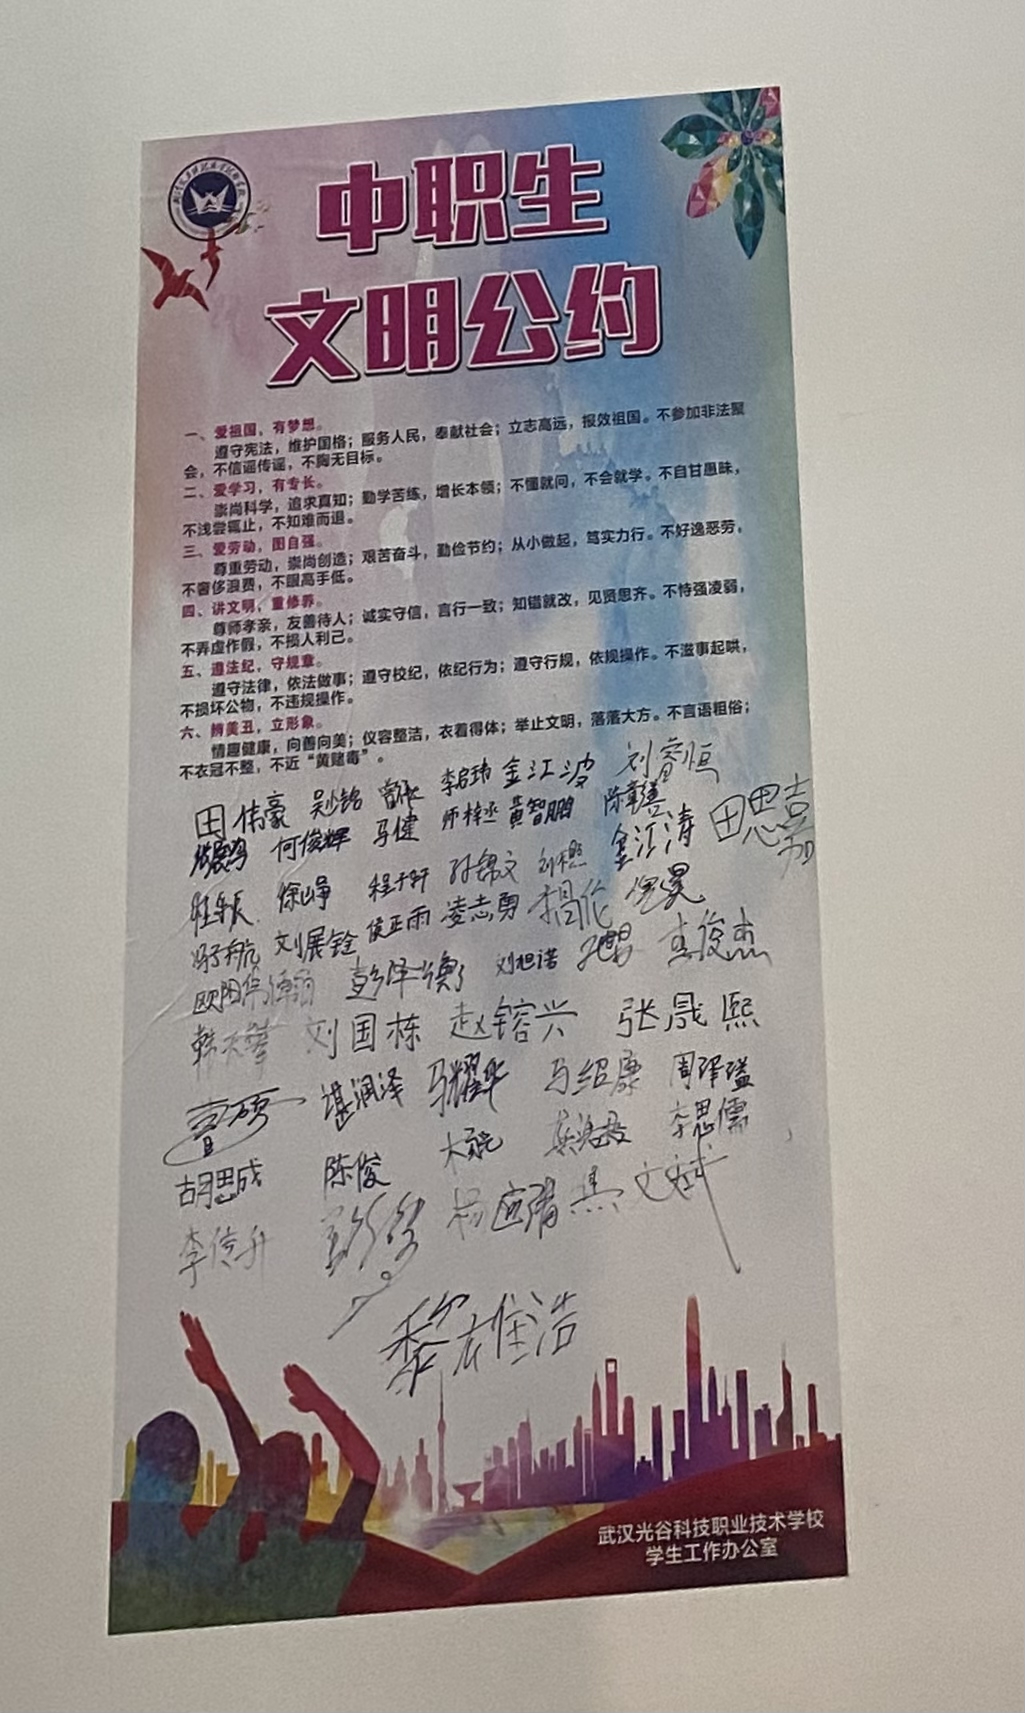 中职生
文明公约
一、爱祖国，有梦想。
遵守宪法，维护国格；服务人民，奉献社会；立志高远，报效祖国。不参加非法聚
会，不信谣传谣，不胸无目标。
二、爱学习，有专长。
崇尚科学，追求真知；勤学苦练，增长本领；不懂就问，不会就学。不自甘愚昧，
不浅尝辄止，不知难而退。
三、爱劳动，图自强。
尊重劳动，崇尚创造；艰苦奋斗，勤俭节约；从小做起，笃实力行。不好逸恶劳，
不奢侈浪费，不眼高手低。
四、讲文明，重修养。
尊师孝亲，友善待人；诚实守信，言行一致；知错就改，见贤思齐。不恃强凌弱，
不弄虚作假，不损人利己。
五、遵法纪，守规章。
遵守法律，依法做事；遵守校纪，依纪行为；遵守行规，依规操作。不滋事起哄，
不损坏公物，不违规操作。
六、辨美丑，立形象。
情趣健康，向善向美；仪容整洁，衣着得体；举止文明，落落大方。不言语粗俗；
不衣冠不整，不近“黄赌毒”。
田伟豪 吴少铭 李启玮 金江波 刘睿恒
何俊辉 马健 师梓丞 黄智鹏 田思嘉
徐峥 程子轩 孙锦文 金江涛
刘展铨 侯正雨 凌志勇 倪昊
彭泽衡 刘旭诺
刘国栋 赵镕兴 张晟熙
谌润泽 马耀华 马绍康 周泽瑥
胡思成 陈俊 李思儒
李传升
黎雄浩
武汉光谷科技职业技术学校
学生工作办公室